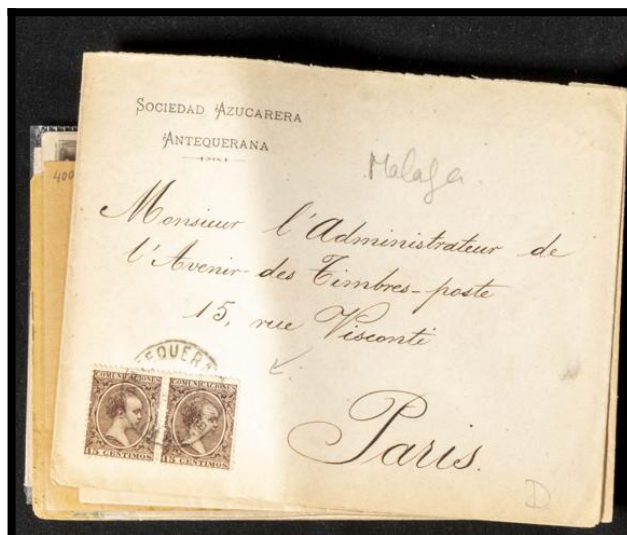 SOCIEDAD AZUCARERA
ANTEQUERANA
Malaga
400
Monsieur l'Administrateur de
l'Avenir des Timbres-poste
15, rue Visconti
Paris.
EQUERA
COMUNICACIONES COMUNICACIONES
15 CENTIMOS 15 CENTIMOS
D